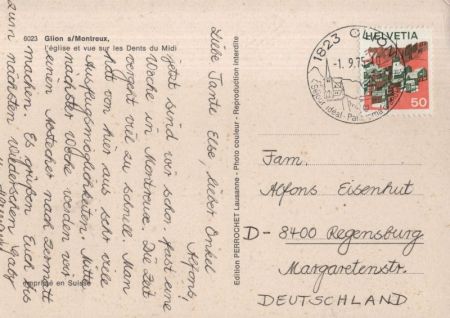 6023 Glion s/Montreux,
l'église et vue sur les Dents du Midi
Liebe Tante Else, lieber Onkel
Alfons,
jetzt sind wir schon fast eine
Woche in Montreux. Die Zeit
vergeht viel zu schnell. Man
hat von hier aus sehr viele
Ausflugmöglichkeiten. Mitte
nächster Woche werden wir
einen Abstecher nach Zermatt
machen. Es grüßen Euch bis
zum nächsten Wiedersehen Gaby
imprimé en Suisse
Edition PERROCHET Lausanne - Photo couleur - Reproduction interdite
1823 GLION
-1.9.75
HELVETIA
50
Fam.
Alfons Eisenhut
D-8400 Regensburg
Margaretenstr.
DEUTSCHLAND